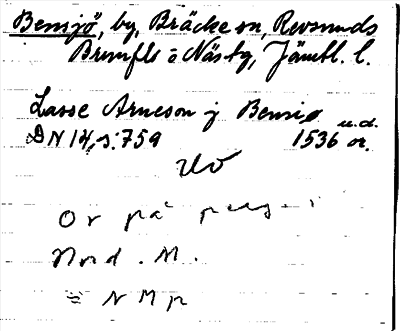 Bensjö, by, Bräcke sn, Revsunds
Brunflo o Näs tg, Jämtl. l.
Lasse Arneson j Bensiø u.d.
DN 14, s. 759 1536 or.
Or på
Nord. M.
= N M p